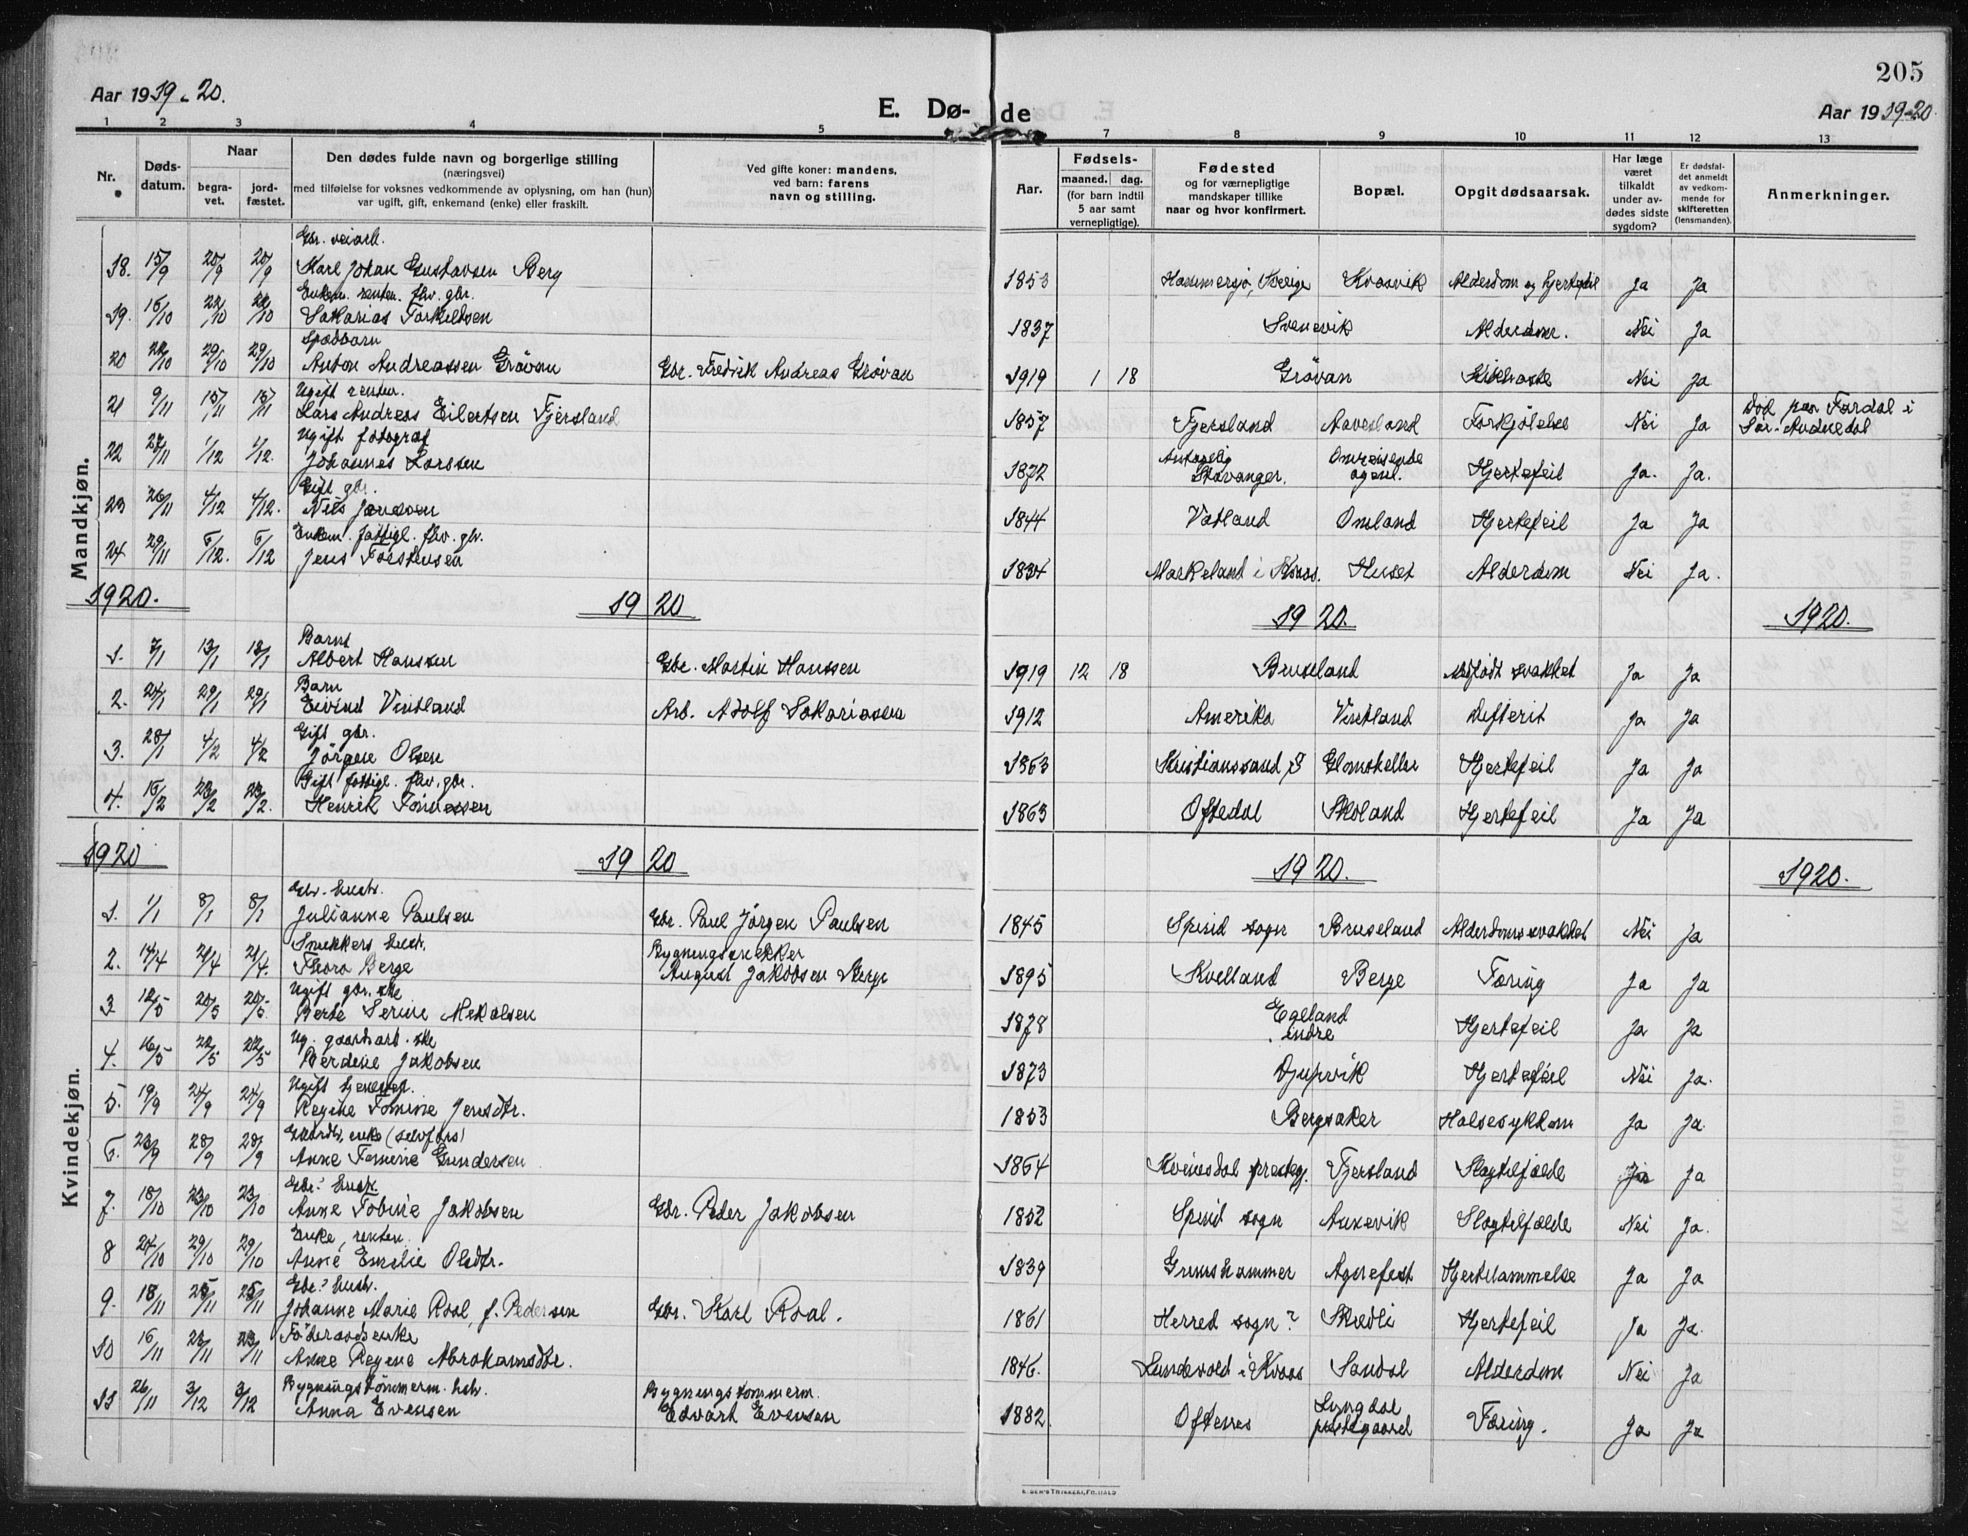 205
Aar 1919-20.
E. Dø-de
Aar 1919-20.
1 2 3 4 5 7 8 9 10 11 12 13
Nr.
Døds-
datum.
Naar
begra-
vet.
jord-
fæstet.
Den dødes fulde navn og borgerlige stilling
(næringsvei)
med tilføielse for voksnes vedkommende av oplysning, om han (hun)
var ugift, gift, enkemand (enke) eller fraskilt.
Ved gifte koner: mandens,
ved barn: farens
navn og stilling.
Aar.
Fødsels-
maaned. dag.
(for barn indtil
5 aar samt
vernepligtige).
Fødested
og for værnepligtige
mandskaper tillike
naar og hvor konfirmert.
Bopæl.
Opgit dødsaarsak.
Har læge
været
tilkaldt
under av-
dødes sidste
sygdom?
Er dødsfal-
det anmeldt
av vedkom-
mende for
skifteretten
(lensmanden).
Anmerkninger.
Mandkjøn.
Gbr. veiarb.
18. 15/9 20/9 20/9 Karl Johan Gustavsen Berg 1853 Hammersjø, Sverige Kvavik Alderdom og hjertefeil Ja Ja
Enkem. renten. fhv. gbr.
19. 15/10 22/10 22/10 Sakarias Torkildsen 1837 Svenevik Alderdom. Nei Ja
Spædbarn
20 22/10 29/10 29/10 Anton Andreassen Grövan Gbr. Fredrik Andreas Grövan 1919 1 18 Grövan Kikhoste Nei Ja
Ugift renten.
21 9/11 15/11 15/11 Lars Andreas Eilertsen Fjersland 1857 Fjersland Aavesland Forkjölelse Nei Ja Död paa Fardal i
Sör-Audnedal
Ugift fotograf
22 24/11 1/12 1/12. Johannes Larssen 1872 Antagelig Stavanger. Omreisende agent. Hjertefeil Ja. Ja.
Gift gbr.
23 26/11 4/12 4/12. Nils Jonassen 1844 Vatland Omland Hjertefeil Ja Ja
Enkem. fattigl. fhv. gbr.
24 29/11 6/12. 6/12 Jens Torstensen 1834 Markeland i Kvaas. Huset Alderdom Nei Ja.
1920. 1920 1920. 1920.
Barn
1. 7/1 13/1 13/1 Albert Hanssen Gbr. Martin Hanssen 1919 12 18 Bruseland Medfödt svakhet Ja Ja
Barn
2. 24/1 29/1 29/1 Eivind Vintland Arb. Adolf Sakariassen 1912 Amerika Vintland Difterit Ja Ja
Gift gbr.
3. 28/1 4/2 4/2 Jörgen Olsen 1863 Kristianssand S Glomskeller Hjertefeil Ja Ja
Gift fattigl. fhv. gbr.
4. 16/2 23/2 23/2. Henrik Tönnessen 1863 Oftedal Skoland Hjertefeil Ja Ja
Kvindekjøn.
1920 1920 1920. 1920.
Gbr. hustr.
1. 1/1 8/1 8/1 Julianne Paulsen Gbr. Paul Jörgen Paulsen 1845 Spind sogn Bruseland Alderdomssvakhet Nei Ja
Snekkers hustr.
2. 14/4 21/4 21/4. Thora Berge Bygningssnekker
August Jakobsen Berge 1895 Kvelland Berge Tæring Ja Ja
Ugift gbr. ske
3 12/5 20/5 20/5. Berte Serine Mekalsen 1878 Egeland indre Hjertefeil Ja Ja
Ug. gaardarb. ske
4. 16/5 22/5 22/5 Berdine Jakobsen 1873 Djupvik Hjertefeil Nei Ja.
Ugift tjenestep.
5. 19/9 24/9 24/9 Regine Tomine Jensdtr. 1853 Bergsaker Halsesykdom Ja Ja.
Gaardbr. enke (selvfors)
6. 23/9 28/9 28/9 Anne Tomine Gundersen 1864 Kvinesdal prestegj. Fjersland Slagtilfælde Ja Ja
Gbr. hustr.
7. 18/10 23/10 23/10 Anne Tobine Jakobsen Gbr. Peder Jakobsen 1852 Spind sogn Aunevik Slagtilfælde Nei Ja.
Enke, renten.
8 24/10 29/10 29/10 Anne Emelie Olsdtr. 1839 Grumshammer Agerefest Hjertelammelse Ja Ja
Gbr. hustr.
9. 18/11 25/11 25/11 Johanne Marie Roal, f. Pedersen Gbr. Karl Roal. 1861 Herred sogn? Skredli Hjertefeil Ja Ja.
Föderaadsenke
10 16/11 23/11 23/11 Anne Regine Abrahamsdtr. 1846. Lundevold i Kvaas Sandal Alderdom Nei Ja
Bygningstömmerm. hstr. Bygningstömmerm.
11 26/11 3/12 3/12 Anna Evensen Edvart Evensen 1882. Oftenes Lyngdal
prestegaard Tæring. Ja Ja